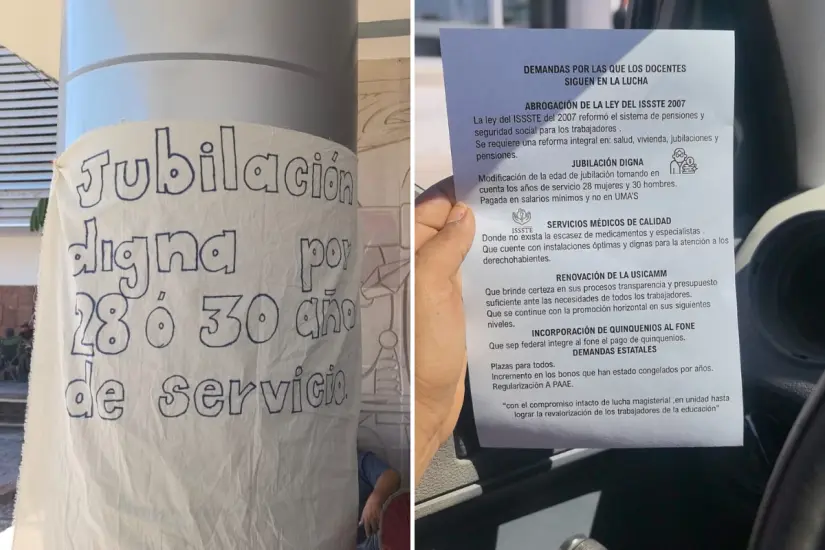 Jubilación
digna por
28 ó 30 año
de servicio.
DEMANDAS POR LAS QUE LOS DOCENTES
SIGUEN EN LA LUCHA
ABROGACIÓN DE LA LEY DEL ISSSTE 2007
La ley del ISSSTE del 2007 reformó el sistema de pensiones y
seguridad social para los trabajadores .
Se requiere una reforma integral en: salud, vivienda, jubilaciones y
pensiones.
JUBILACIÓN DIGNA
Modificación de la edad de jubilación tomando en
cuenta los años de servicio 28 mujeres y 30 hombres.
Pagada en salarios mínimos y no en UMA'S
ISSSTE
SERVICIOS MÉDICOS DE CALIDAD
Donde no exista la escasez de medicamentos y especialistas
Que cuente con instalaciones óptimas y dignas para la atención a los
derechohabientes.
RENOVACIÓN DE LA USICAMM
Que brinde certeza en sus procesos transparencia y presupuesto
suficiente ante las necesidades de todos los trabajadores.
Que se continue con la promoción horizontal en sus siguientes
niveles.
INCORPORACIÓN DE QUINQUENIOS AL FONE
Que sep federal integre al fone el pago de quinquenios.
DEMANDAS ESTATALES
Plazas para todos.
Incremento en los bonos que han estado congelados por años.
Regularización A PAAE.
"con el compromiso intacto de lucha magisterial ,en unidad hasta
lograr la revalorización de los trabajadores de la educación"